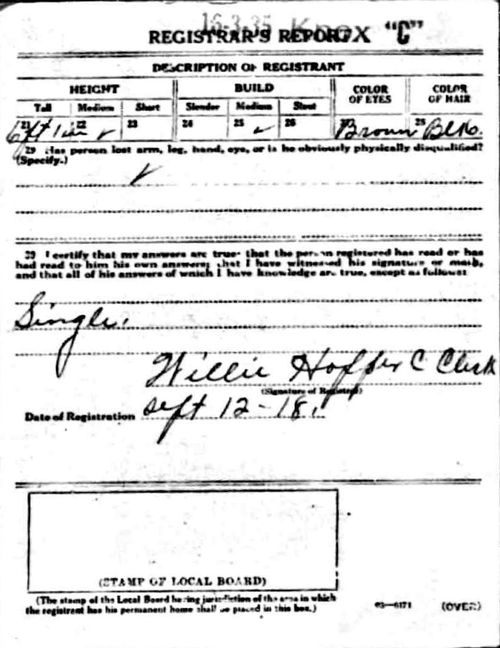 16-3-35 Knox "C"
REGISTRAR'S REPORT
DESCRIPTION OF REGISTRANT
HEIGHT BUILD COLOR OF EYES COLOR OF HAIR
Tall Medium Short Slender Medium Stout
21 22 23 24 25 26 27 28
6 ft 1 in ✓ ✓ Brown Blk.
29 Has person lost arm, leg, hand, eye, or is he obviously physically disqualified?
(Specify.)
✓
30 I certify that my answers are true; that the person registered has read or has
had read to him his own answers; that I have witnessed his signature or mark,
and that all of his answers of which I have knowledge are true, except as follows:
Single.
Willie Hoffer C Clerk
(Signature of Registrar)
Date of Registration Sept 12-18.
(STAMP OF LOCAL BOARD)
(The stamp of the Local Board having jurisdiction of the area in which
the registrant has his permanent home shall be placed in this box.)
03—6171 (OVER)